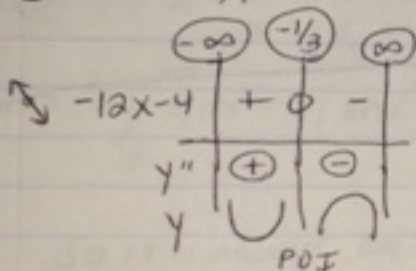 -∞ -1/3 ∞
-12x-4 + 0 -
y" + -
y
POI